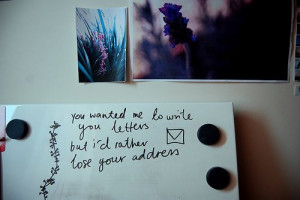 you wanted me to write
you letters
but i'd rather
lose your address